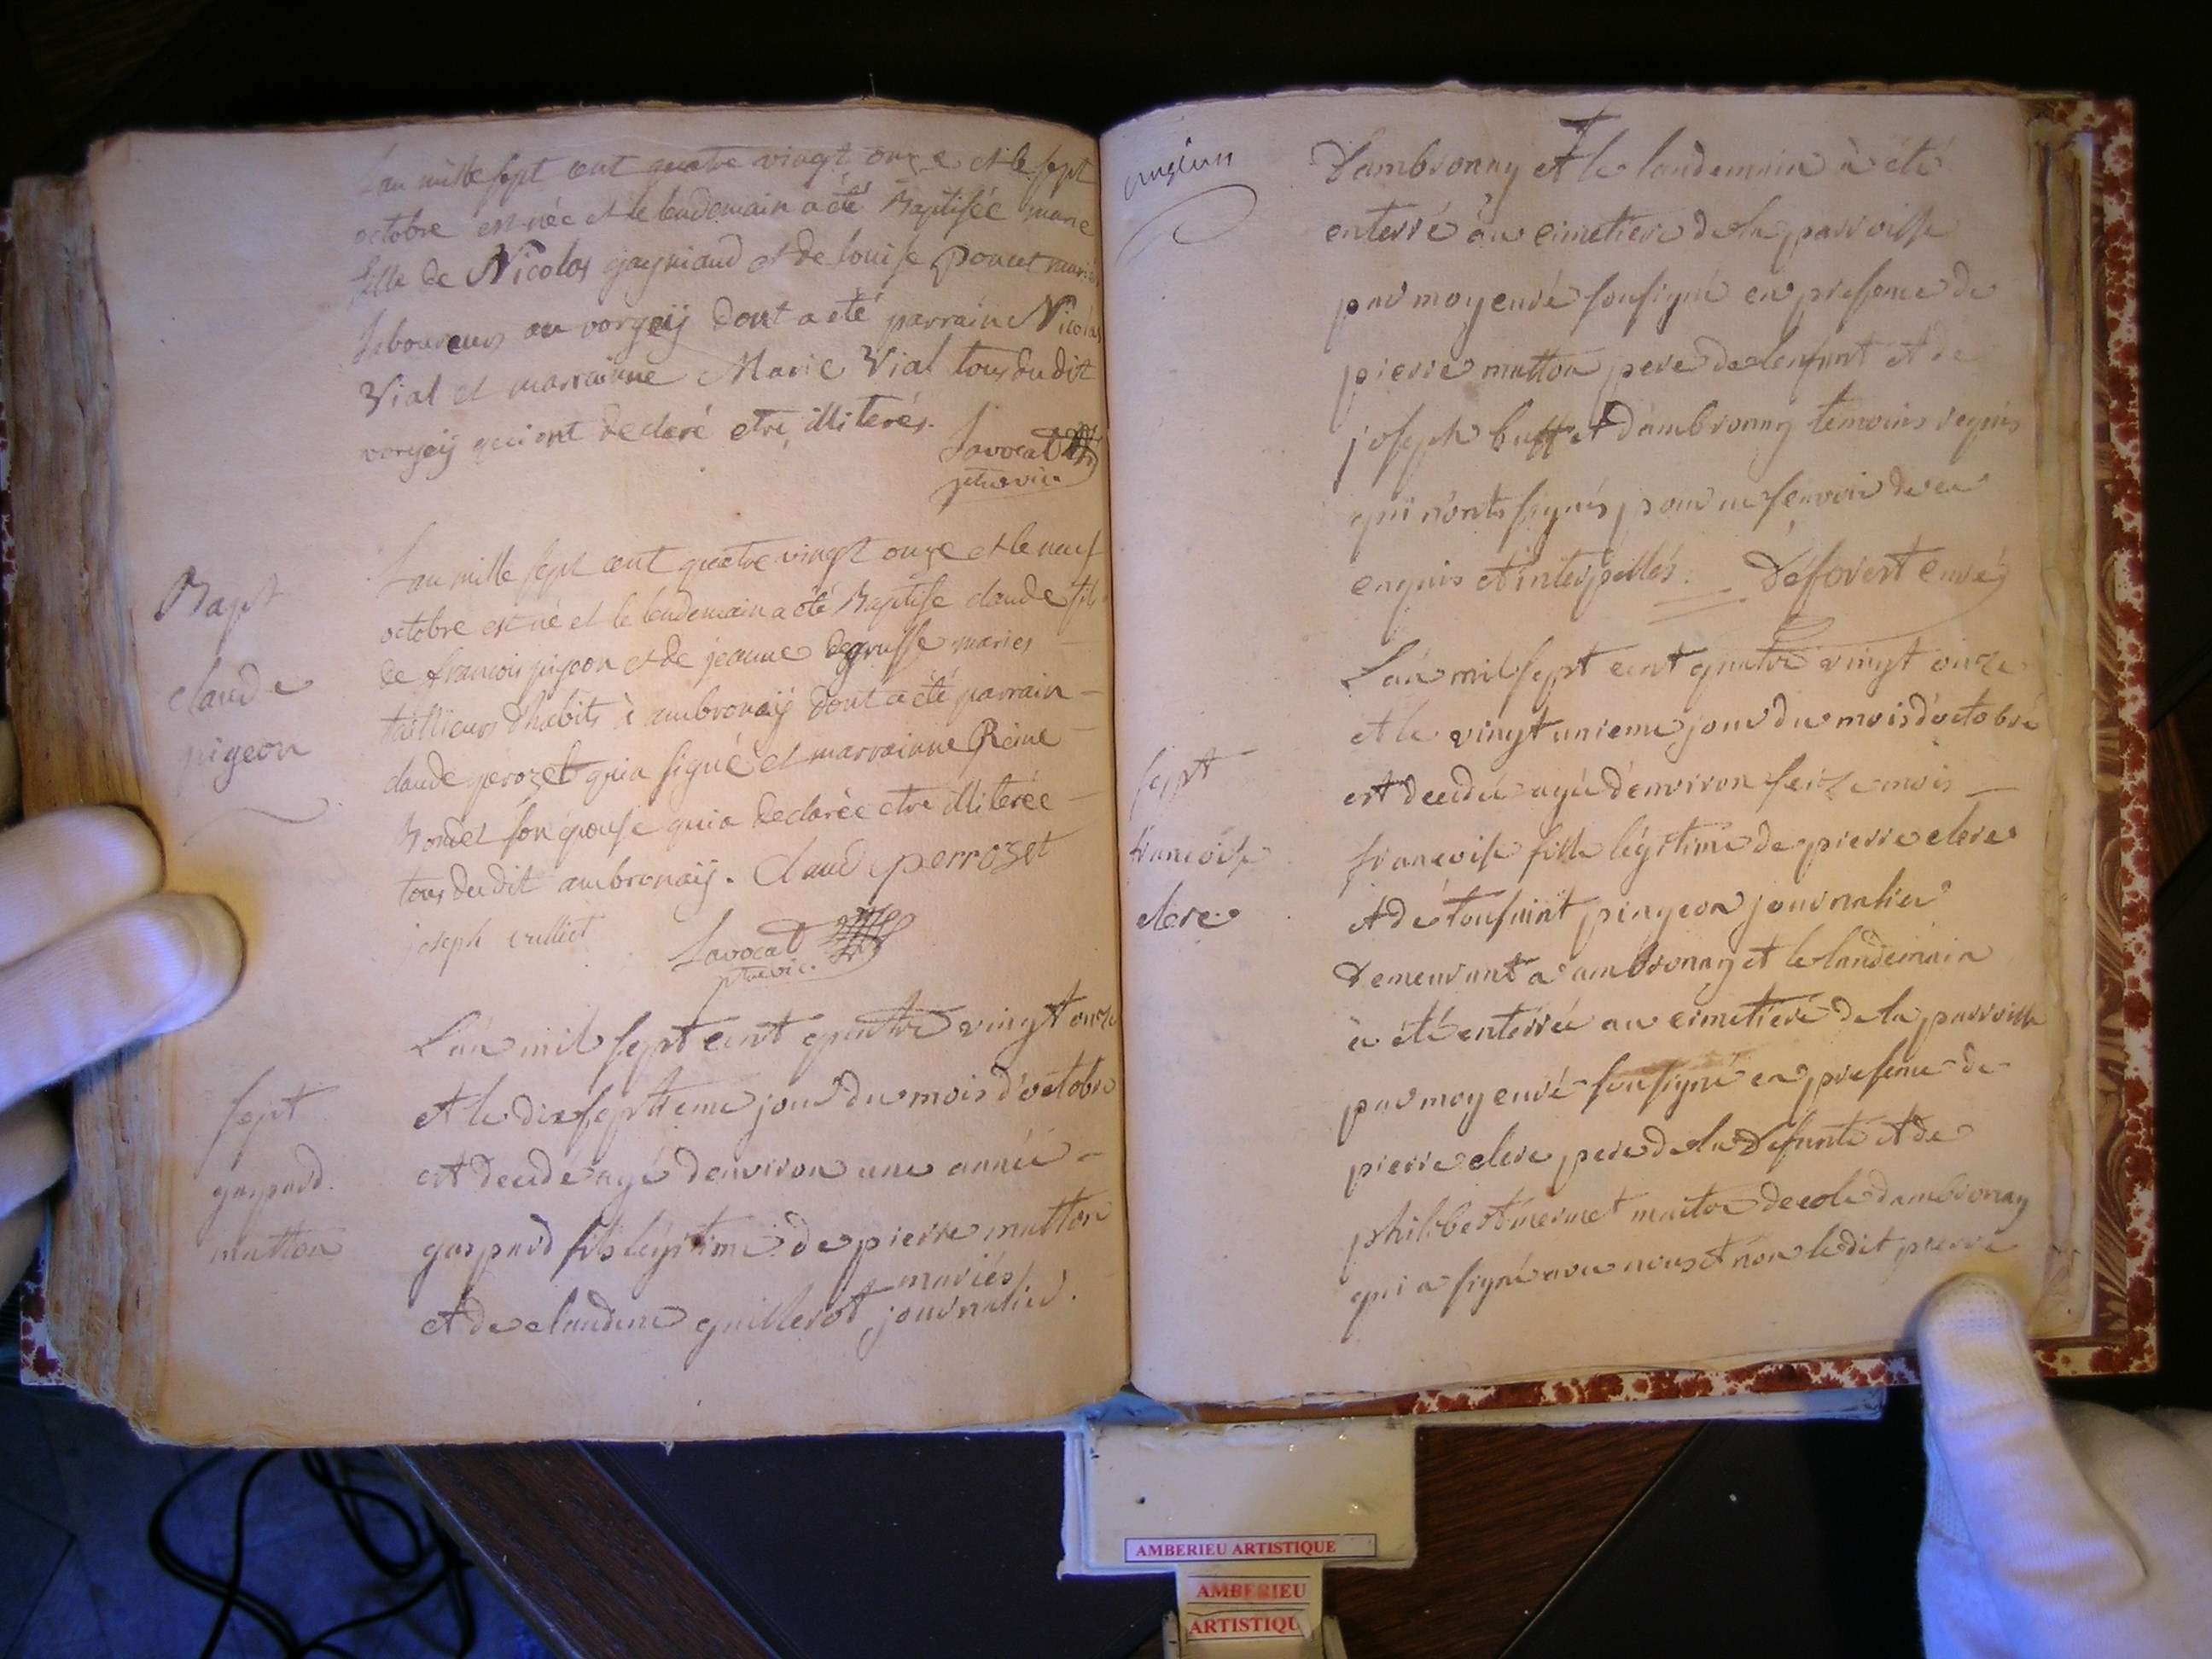 L'an mille sept cent quatre vingt onze et le sept
octobre est née et le lendemain a été Baptisée marie
fille de Nicolas gagniaud et de louise poncet mariés
laboureurs au vorgey dont a été parrain Nicolas
Vial et marrainne Marie Vial tous du dit
vorgey qui ont declaré etre illiterés.
Savocat
ptre vic.
Bapt
claude
pigeon
L'an mille sept cent quatre vingt onze et le neuf
octobre est né et le lendemain a été Baptise claude fils
de francois pigeon et de jeanne degrusse maries
tailleurs d'habits à ambronaij dont a été parrain
claude perozet qui a signé et marrainne Reine
Bondet son epouse qui a declarée etre illiterée
tous du dit ambronaij. Claud perrozet
joseph vulliet
Savocat
ptre vic.
sept
gaspard
mutton
L'an mil sept cent quatre vingt onze
et le dixseptieme jour du mois d'octobre
est decedé agé denviron une année
gaspard fils légitime de pierre mutton
mariés
et de claudine guillerot journalier.
Dambronay et le landemain à été
enterré au cimetiere de la parroisse
par moy curé sousigné en presence de
pierre mutton pere de lenfant et de
joseph buffet d'ambronay temoins requis
qui n'onts signés pour ne scavoir de ce
enquis et interpellés. Déforest curé
sept
francoise
clerc
L'an mil sept cent quatre vingt onze
et le vingt unieme jour du mois d'octobre
est decedée agée d'environ seize mois
francoise fille légitime de pierre clerc
et de tousaint pingeon journalier
Demeurant a ambronay et le landemain
à été enterrée au cimetiere de la parroisse
par moy curé sousigné en presence de
pierre clerc pere de la Defunte et de
philibert mermet maitre decole dambronay
qui a signé avec nous et non le dit pierre
AMBERIEU ARTISTIQUE
AMBERIEU
ARTISTIQU